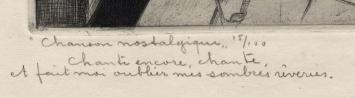 "Chanson nostalgique" 15/100
Chante encore, chante,
et fait moi oublier mes sombres rêveries.